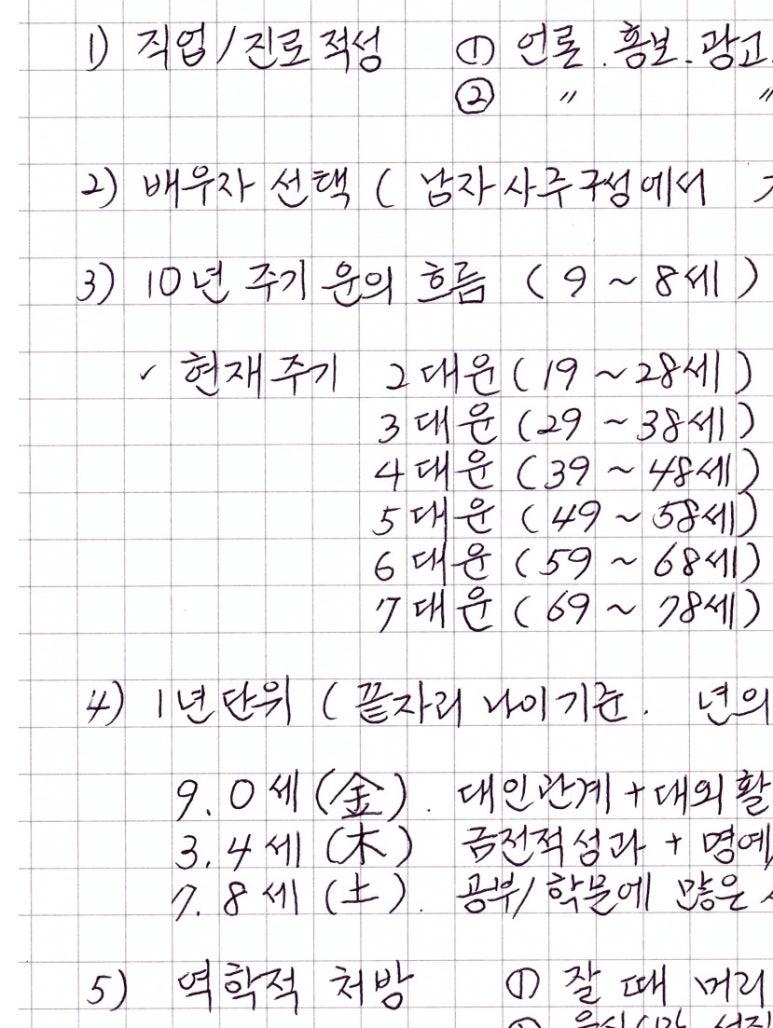 1) 직업/진로적성 ① 언론.홍보.광고.
② 〃 〃
2) 배우자 선택 ( 남자사주구성에서
3) 10년 주기 운의 흐름 ( 9 ~ 8세 )
✓ 현재주기 2대운 ( 19 ~ 28세 )
3대운 ( 29 ~ 38세 )
4대운 ( 39 ~ 48세 )
5대운 ( 49 ~ 58세 )
6대운 ( 59 ~ 68세 )
7대운 ( 69 ~ 78세 )
4) 1년단위 ( 끝자리 나이기준. 년의
9.0세 (金). 대인관계 + 대외활
3.4세 (木) 금전적성과 + 명예
7.8세 (土). 공부/학문에 많은
5) 역학적 처방 ① 잘 때 머리